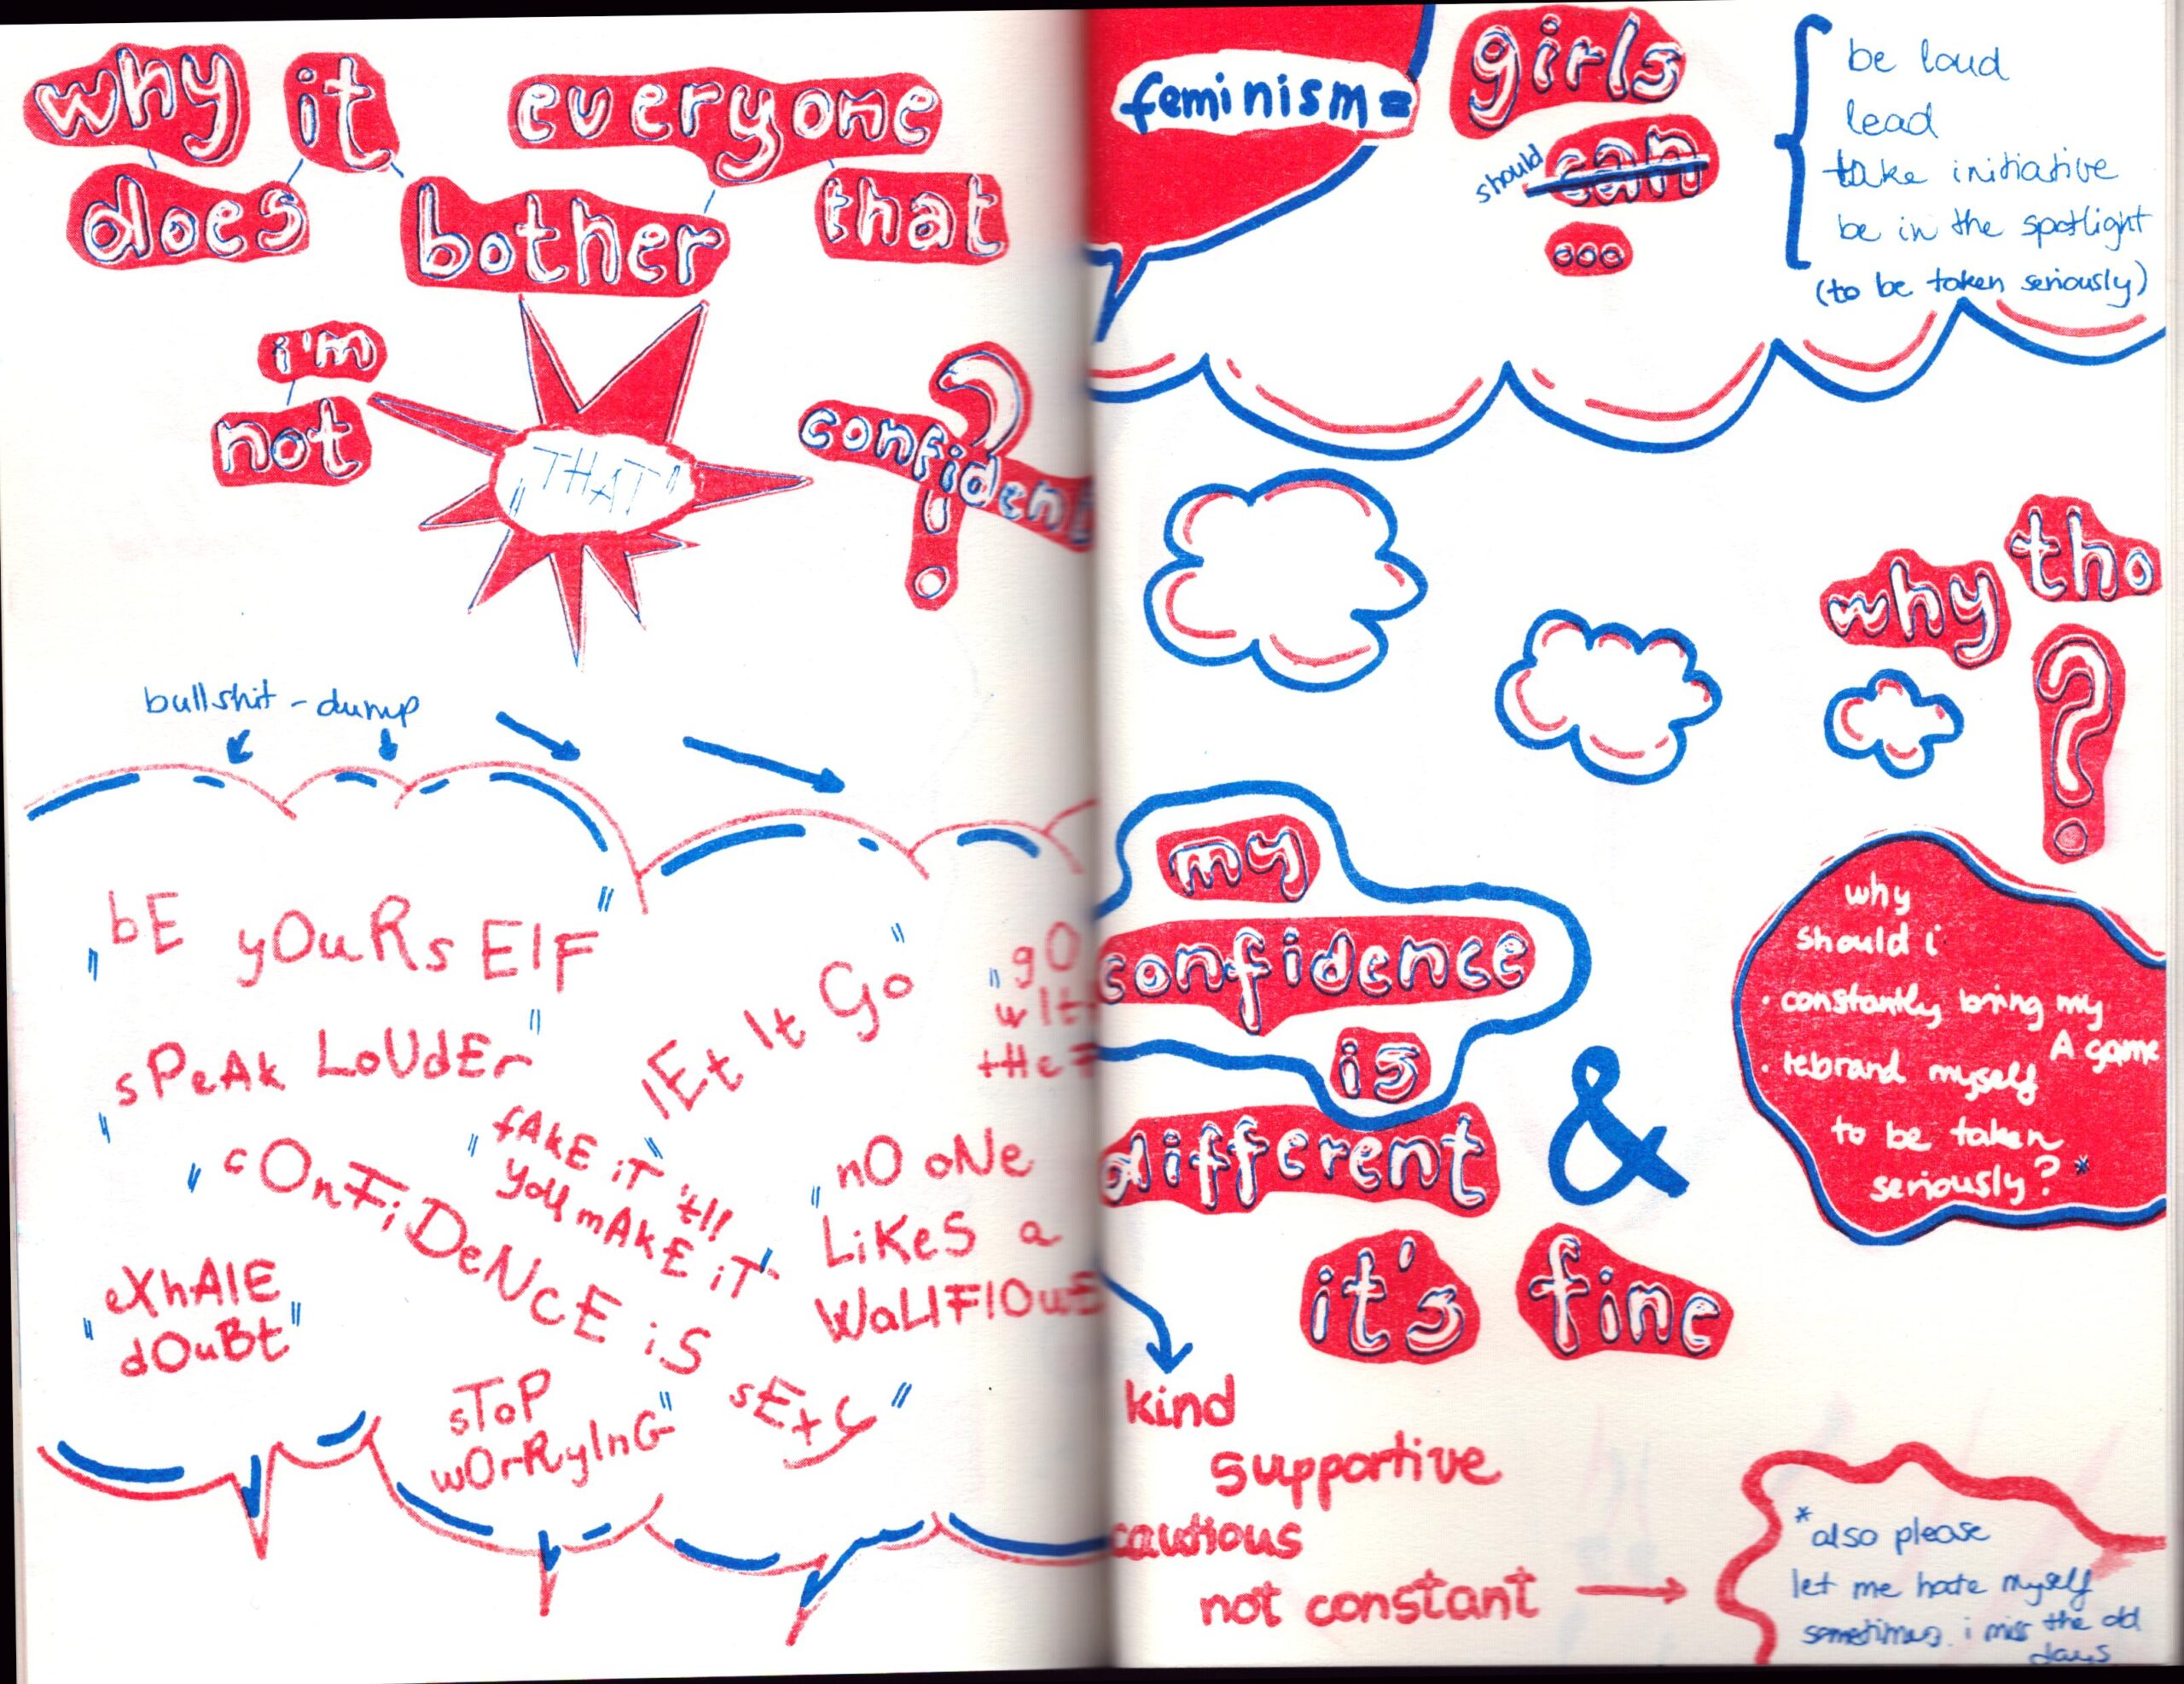 why it everyone
does bother that
i'm
not
"THAT"
confident
?
bullshit - dump
"bE yOuRsElF"
"sPeAk LoUdEr"
"lEt It Go"
"gO
wIt
tHe F
"fAkE iT 'tIl
yoU mAkE iT"
"cOnFiDeNcE iS sExy"
"nO oNe
LiKeS a
WaLlFlOwE
"eXhAlE
dOuBt"
sToP
wOrRyInG"
feminism =
girls
should can
...
be loud
lead
take initiative
be in the spotlight
(to be taken seriously)
why tho
?
my
confidence
is
different
&
it's fine
why
should i
• constantly bring my
A game
• rebrand myself
to be taken
seriously?*
kind
supportive
cautious
not constant
*also please
let me hate myself
sometimes. i miss the old
days